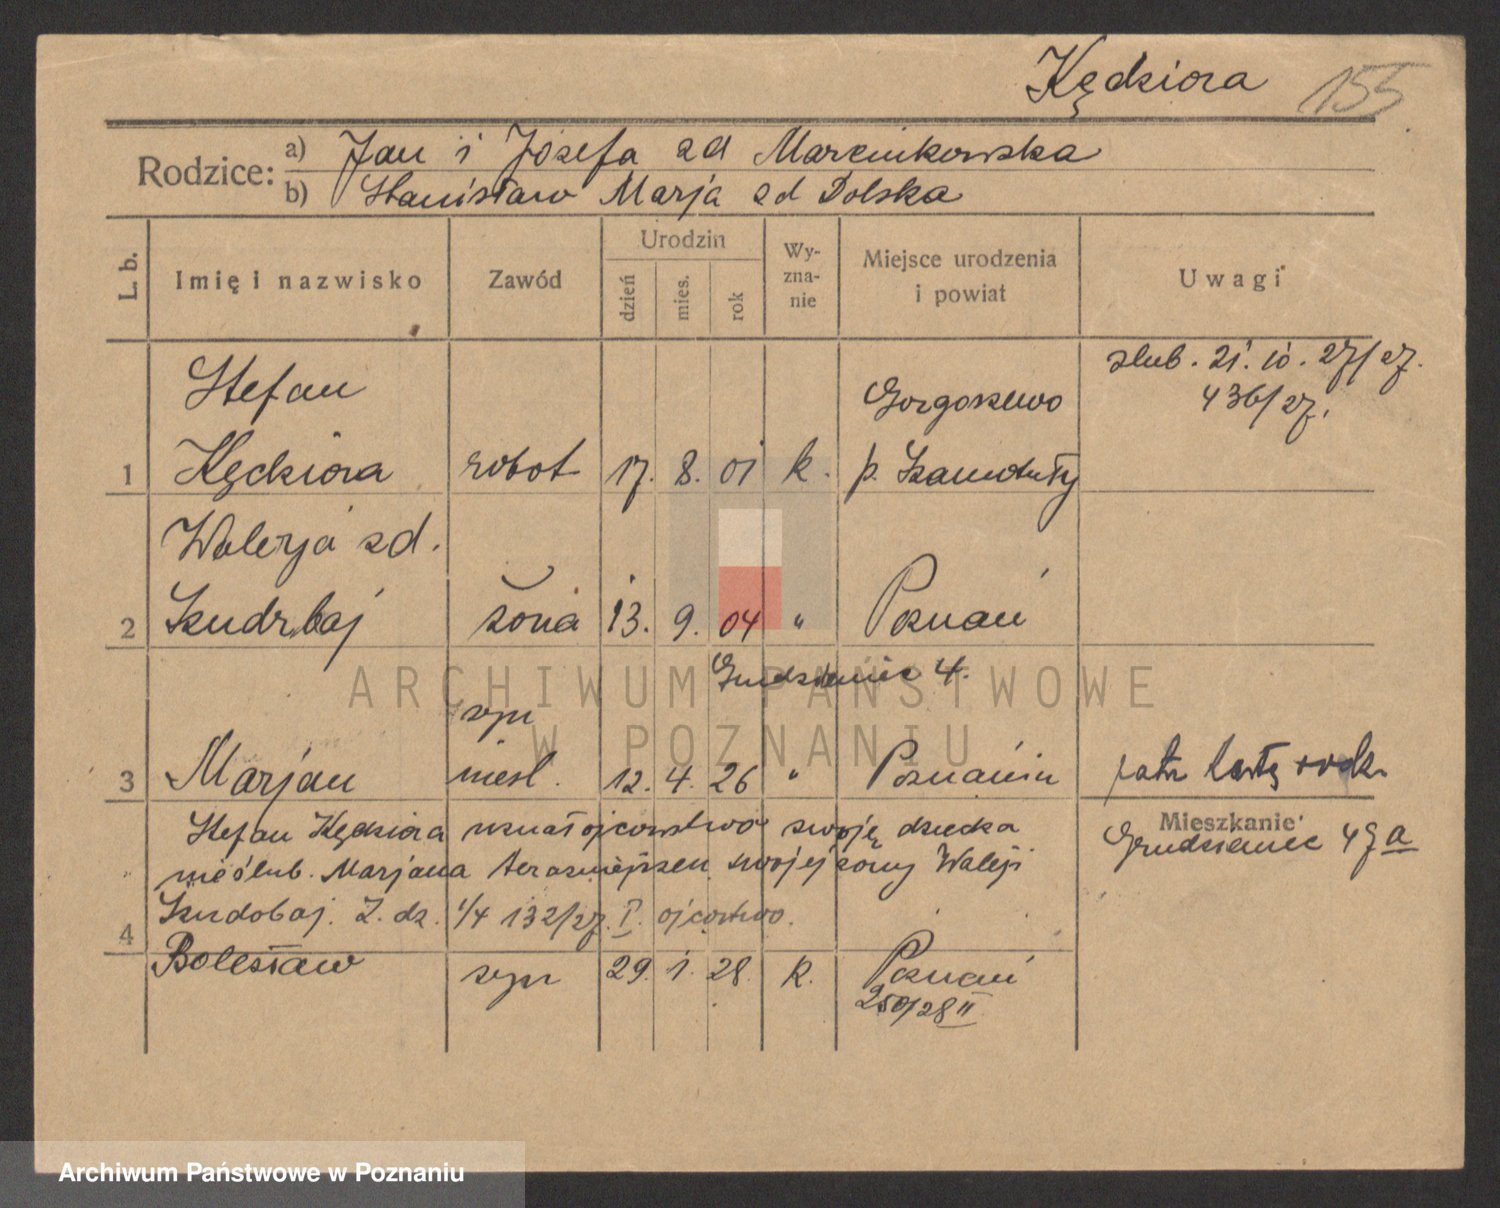 Kędziora 155
Rodzice: a) Jan i Józefa zd Marcinkowska
b) Stanisław Marja zd Dolska
L. b. Imię i nazwisko Zawód Urodzin dzień mies. rok Wyznanie Miejsce urodzenia i powiat Uwagi
ślub. 21. 10. 27/27.
Stefan Gorgoszewo 436/27.
1 Kędziora robot 17. 8. 01 k. p. Szamotuły
Walerja zd.
2 Szudrbaj żona 13. 9. 04 " Poznań
Grudzieniec 4.
ARCHIWUM PAŃSTWOWE
syn
W POZNANIU
3 Marjan nieśl. 12. 4. 26 " Poznaniu patrz kartę rodz.
Stefan Kędziora uznał ojcowstwo swoję dziecka Mieszkanie
nieślub. Marjana terazniejszen swojej żony Waleji Grudzieniec 49a
Szudobaj. Z. dz. 1/4 132/27. I. ojcostwo.
4
Bolesław syn 29. 1. 28. k. Poznań
250/28 II
Archiwum Państwowe w Poznaniu